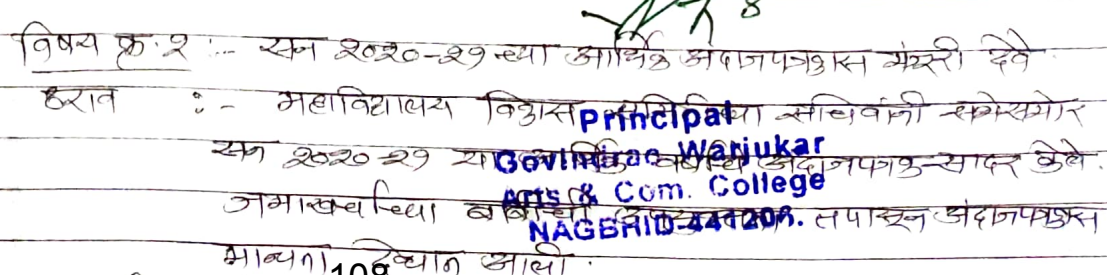 विषय क्र. २ :- सन २०२०-२१ च्या आर्थिक अंदाजपत्रकास मंजूरी देणे
ठराव :- महाविद्यालय विकास समितीच्या सचिवांनी सभेसमोर
सन २०२०-२१ या आर्थिक वर्षाचे अंदाजपत्रक सादर केले.
जमाखर्चाच्या बाबींची तपासून अंदाजपत्रकास
मान्यता देण्यात आली.
Principal
Govindrao Warjukar
Arts & Com. College
NAGBHID-441205.
109